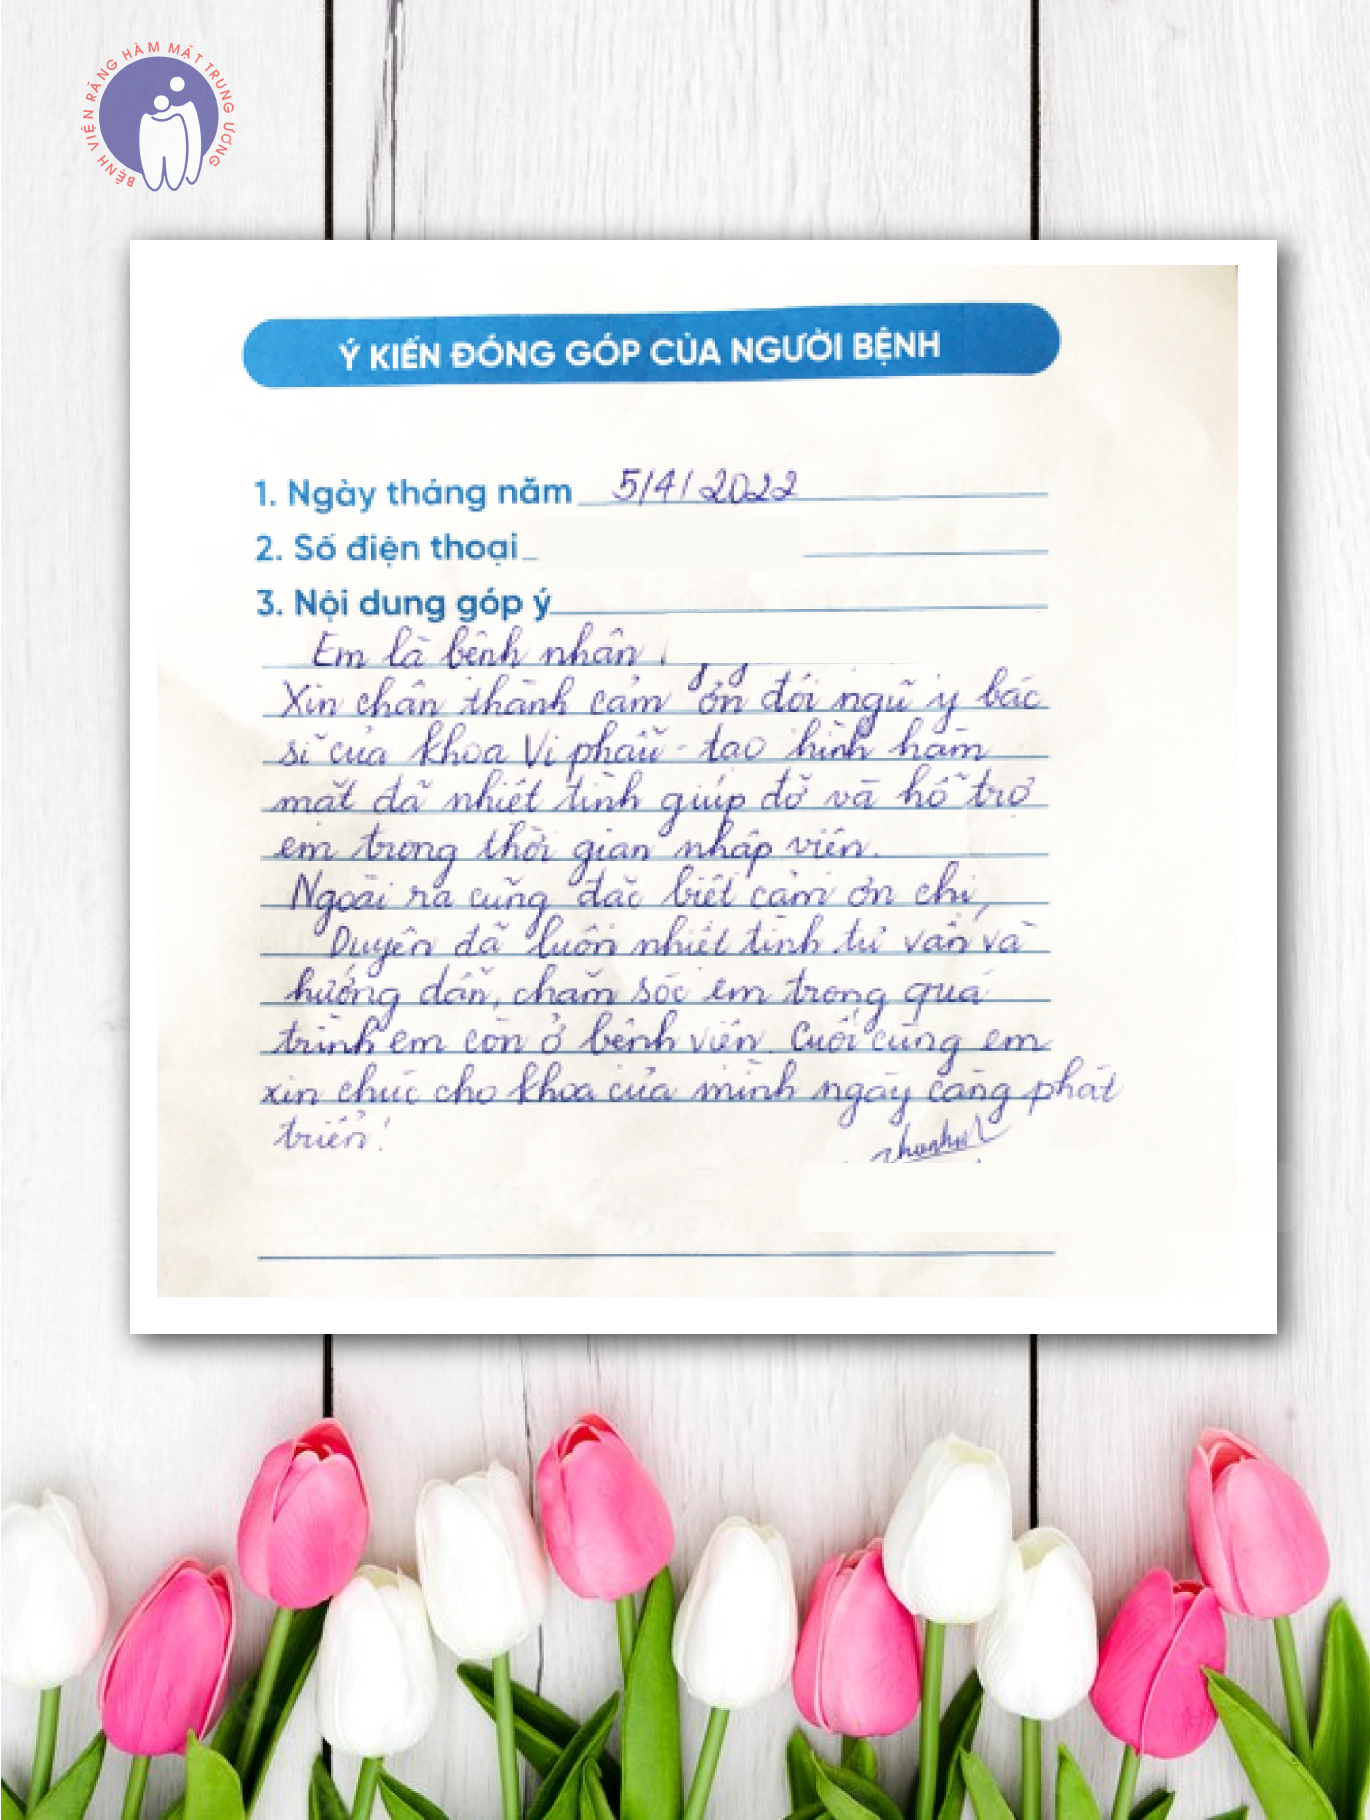 BỆNH VIỆN RĂNG HÀM MẶT TRUNG ƯƠNG
Ý KIẾN ĐÓNG GÓP CỦA NGƯỜI BỆNH
1. Ngày tháng năm 5/4/2022
2. Số điện thoại
3. Nội dung góp ý
Em là bệnh nhân
Xin chân thành cảm ơn đội ngũ y bác
sĩ của khoa Vi phẫu - tạo hình hàm
mặt đã nhiệt tình giúp đỡ và hỗ trợ
em trong thời gian nhập viện.
Ngoài ra cũng đặc biệt cảm ơn chị
Duyên đã luôn nhiệt tình tư vấn và
hướng dẫn, chăm sóc em trong quá
trình em còn ở bệnh viện. Cuối cùng em
xin chúc cho khoa của mình ngày càng phát
triển!